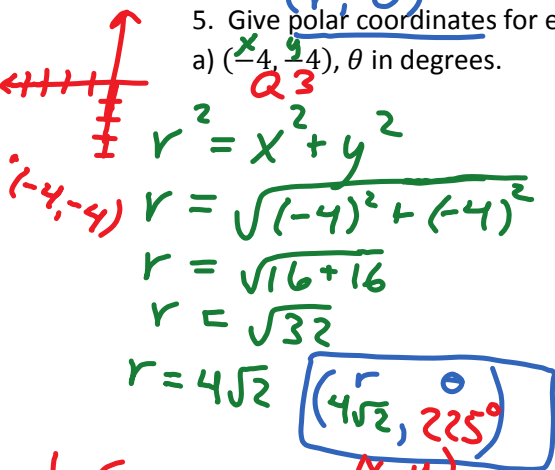 (r, θ)
5. Give polar coordinates for e
x y
a) (−4, −4), θ in degrees.
Q3
r² = x² + y²
(-4, -4)
r = √(-4)² + (-4)²
r = √16+16
r = √32
r = 4√2
r θ
(4√2, 225°)